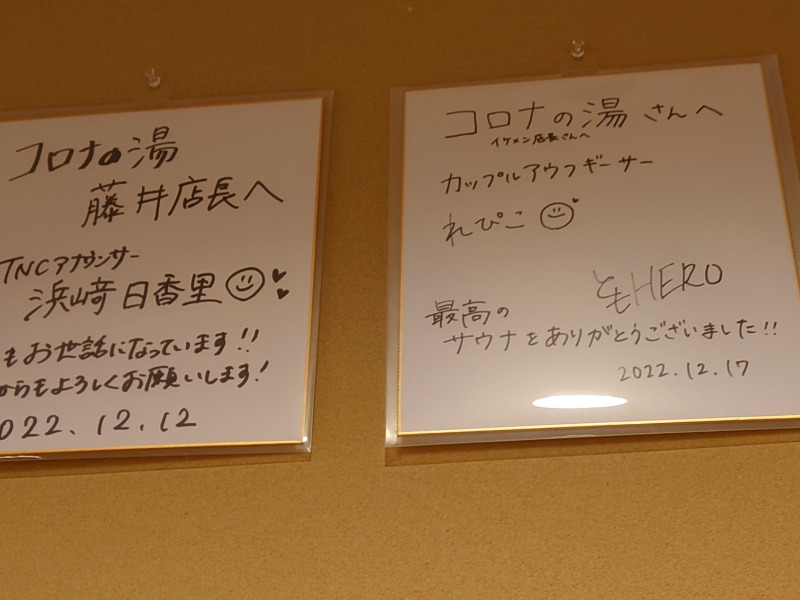 コロナの湯
藤井店長へ
TNCアナウンサー
浜崎日香里
もお世話になっています!!
からもよろしくお願いします!
2022.12.12
コロナの湯さんへ
イケメン店長さんへ
カップルアウフギーサー
れぴこ
ともHERO
最高の
サウナをありがとうございました!!
2022.12.17